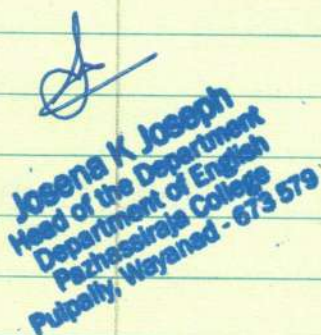 Josena K Joseph
Head of the Department
Department of English
Pazhassiraja College
Pulpally, Wayanad - 673 579